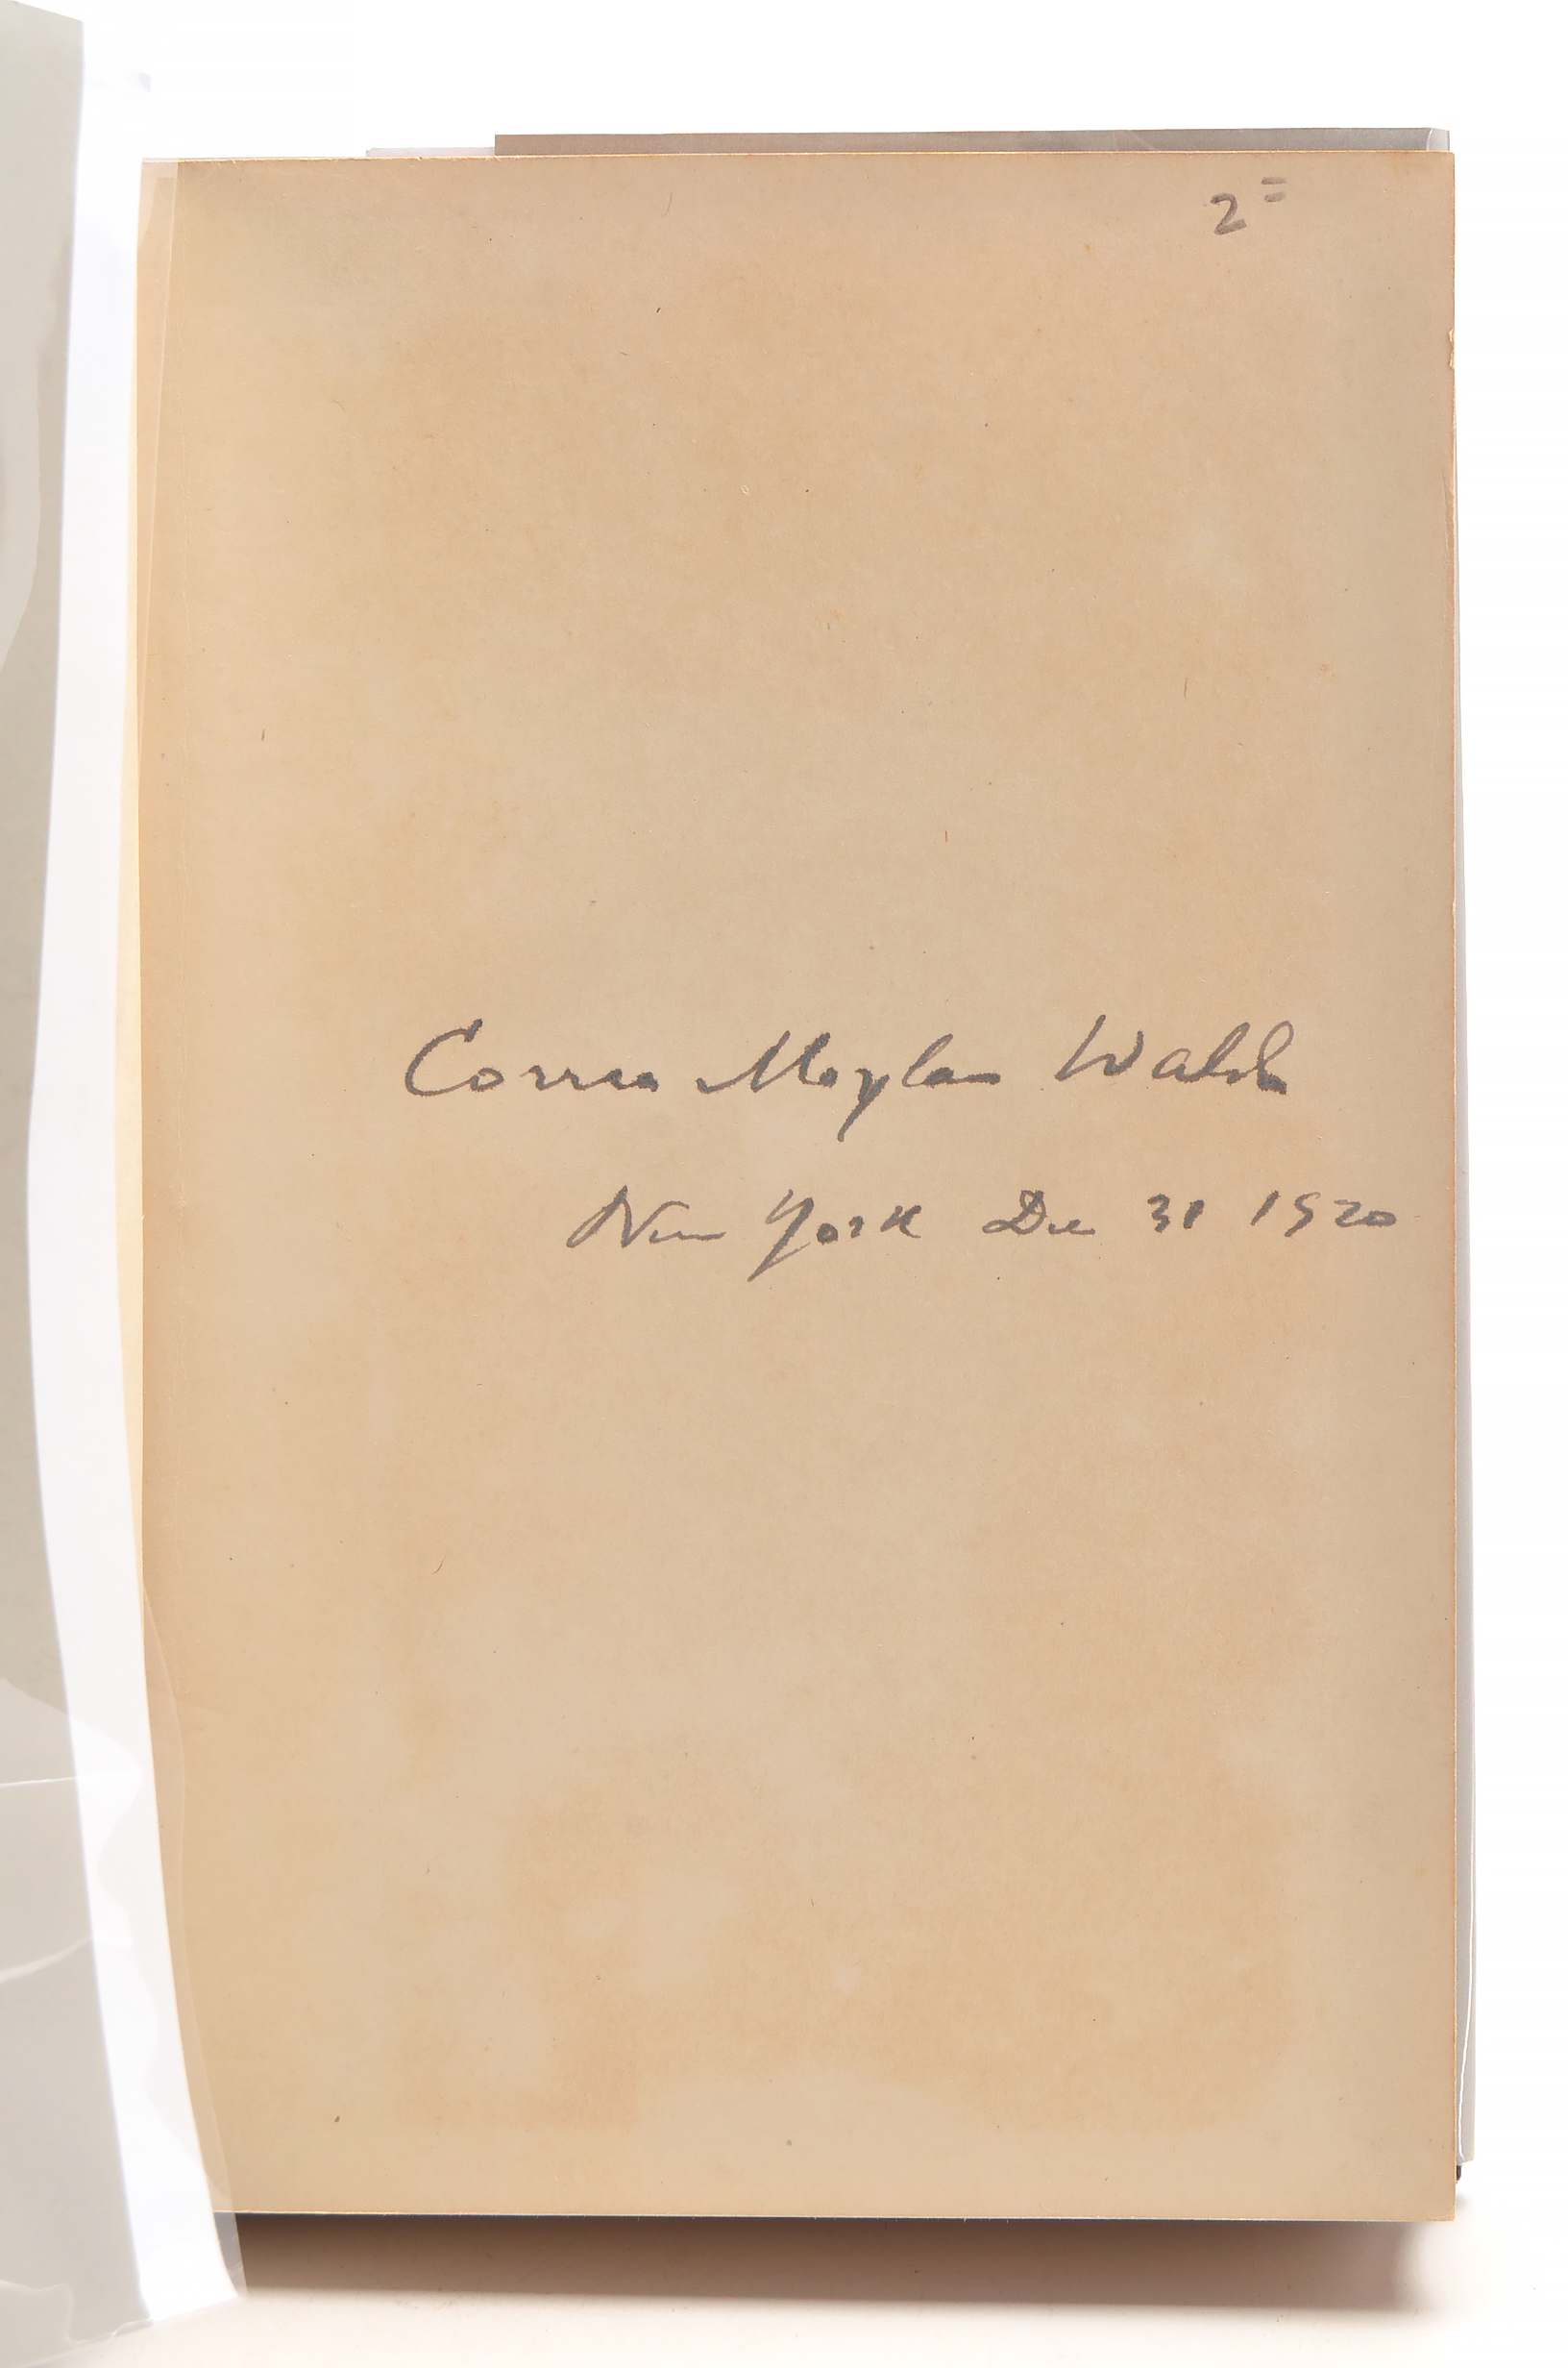 2=
Correa Moylan Walsh
New York Dec 31 1920